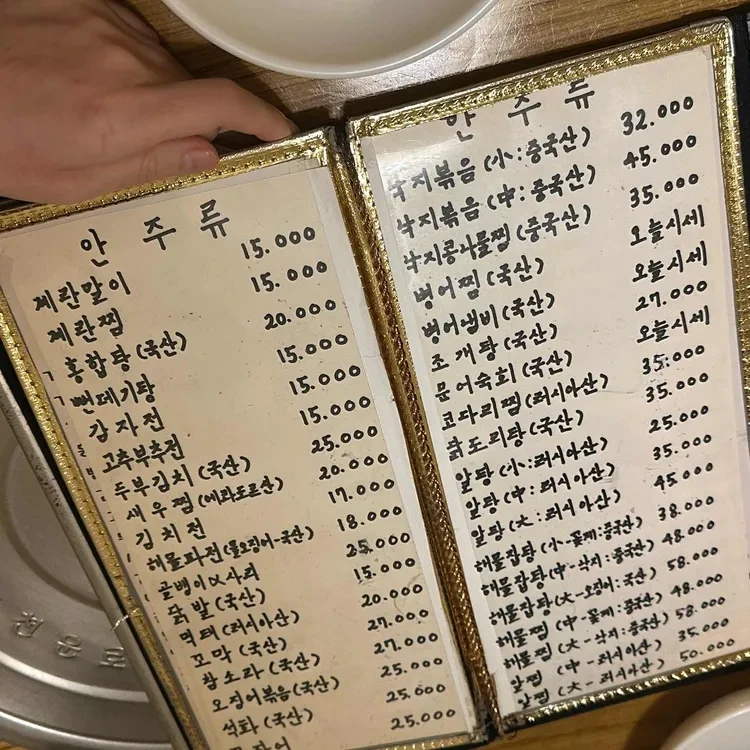 안 주 류
계란말이 15.000
계란찜 15.000
홍합탕(국산) 20.000
뻔데기탕 15.000
감자전 15.000
고추부추전 15.000
두부김치(국산) 25.000
새우찜(에콰도르산) 20.000
김치전 17.000
해물파전(물오징어-국산) 18.000
골뱅이&사리 25.000
닭발(국산) 15.000
먹태(러시아산) 20.000
꼬막(국산) 27.000
참소라(국산) 27.000
오징어볶음(국산) 25.000
석화(국산) 25.000
25.000
안 주 류
낙지볶음(小:중국산) 32.000
낙지볶음(中:중국산) 45.000
낙지콩나물찜(중국산) 35.000
병어찜(국산) 오늘시세
병어앱비(국산) 오늘시세
조개탕(국산) 27.000
문어숙회(국산) 오늘시세
코다리찜(러시아산) 35.000
닭도리탕(국산) 35.000
알탕(小:러시아산) 25.000
알탕(中:러시아산) 35.000
알탕(大:러시아산) 45.000
해물잡탕(小-꽃게:중국산) 38.000
해물잡탕(中-낙지:중국산) 48.000
해물잡탕(大-오징어:국산) 58.000
해물찜(中-꽃게:중국산) 48.000
해물찜(大-낙지:중국산) 58.000
알찜(中-러시아산) 35.000
알찜(大-러시아산) 50.000